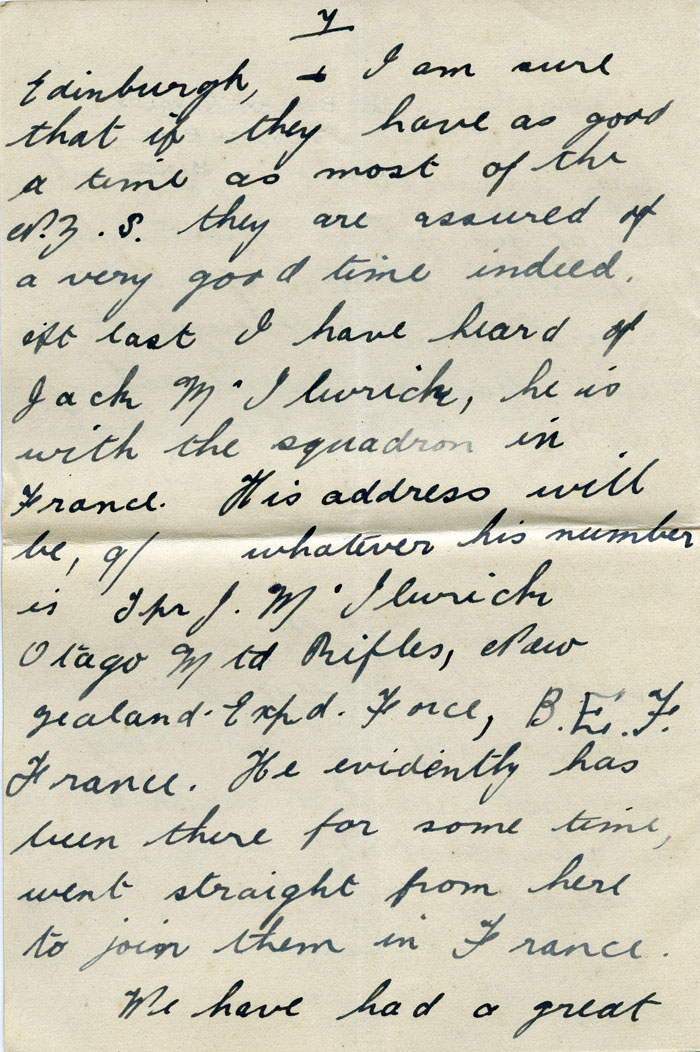 Edinburgh, + I am sure
that if they have as good
a time as most of the
N.Z.S. they are assured of
a very good time indeed.
At last I have heard of
Jack McIlwrick, he is
with the squadron in
France. His address will
be, 9/ whatever his number
is Tpr J. McIlwrick
Otago Mtd Rifles, New
Zealand Expd. Force, B.E.F.
France. He evidently has
been there for some time,
went straight from here
to join them in France.
We have had a great